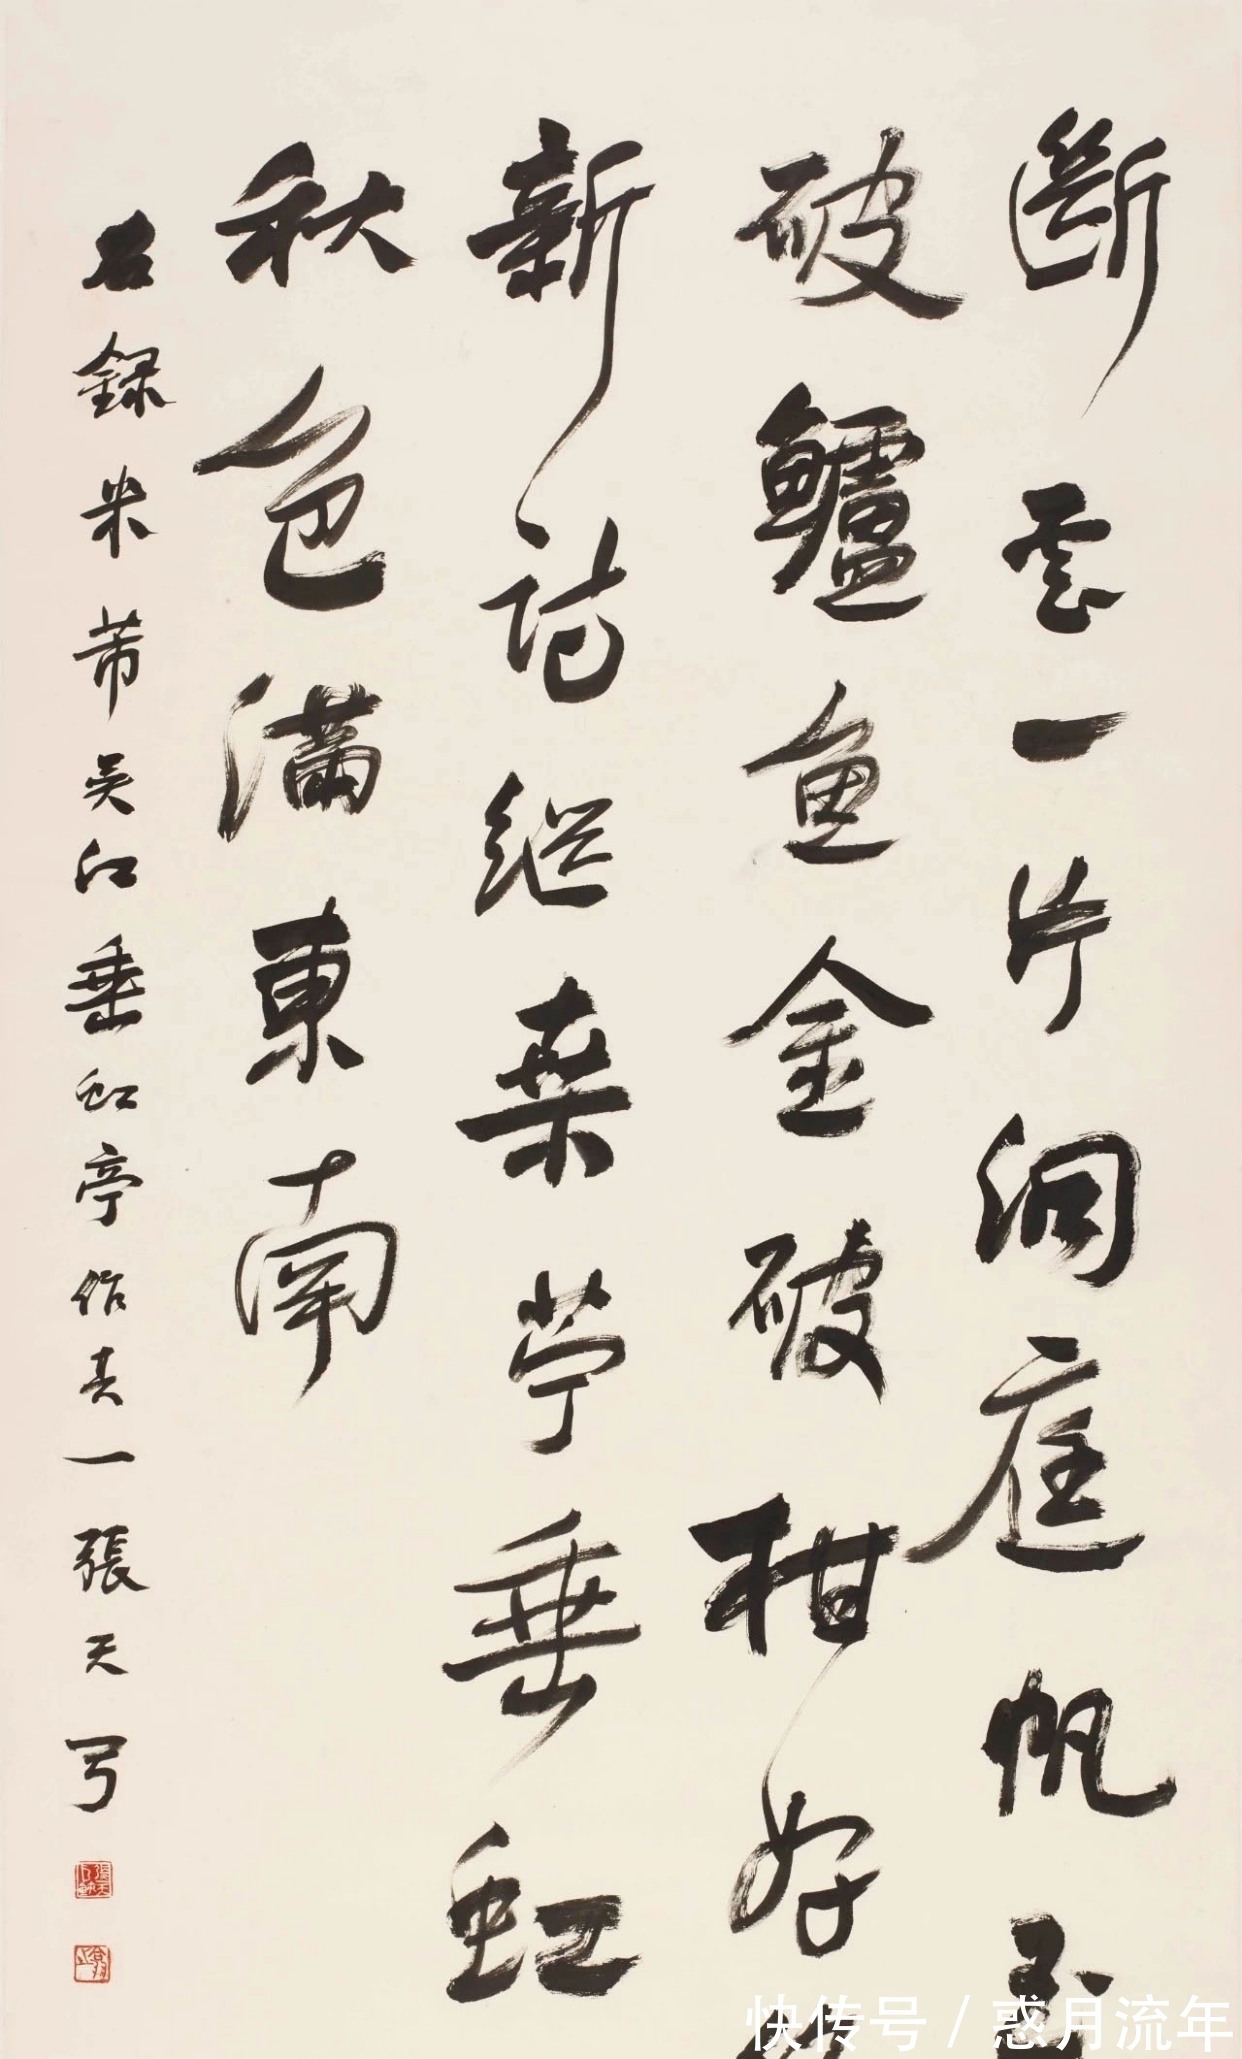 斷雲一片洞庭帆玉
破鱸魚金破柑好
新詩継桑苧垂虹
秋色滿東南
右録米芾吳江垂虹亭作其一張天弓
快传号/惑月流年